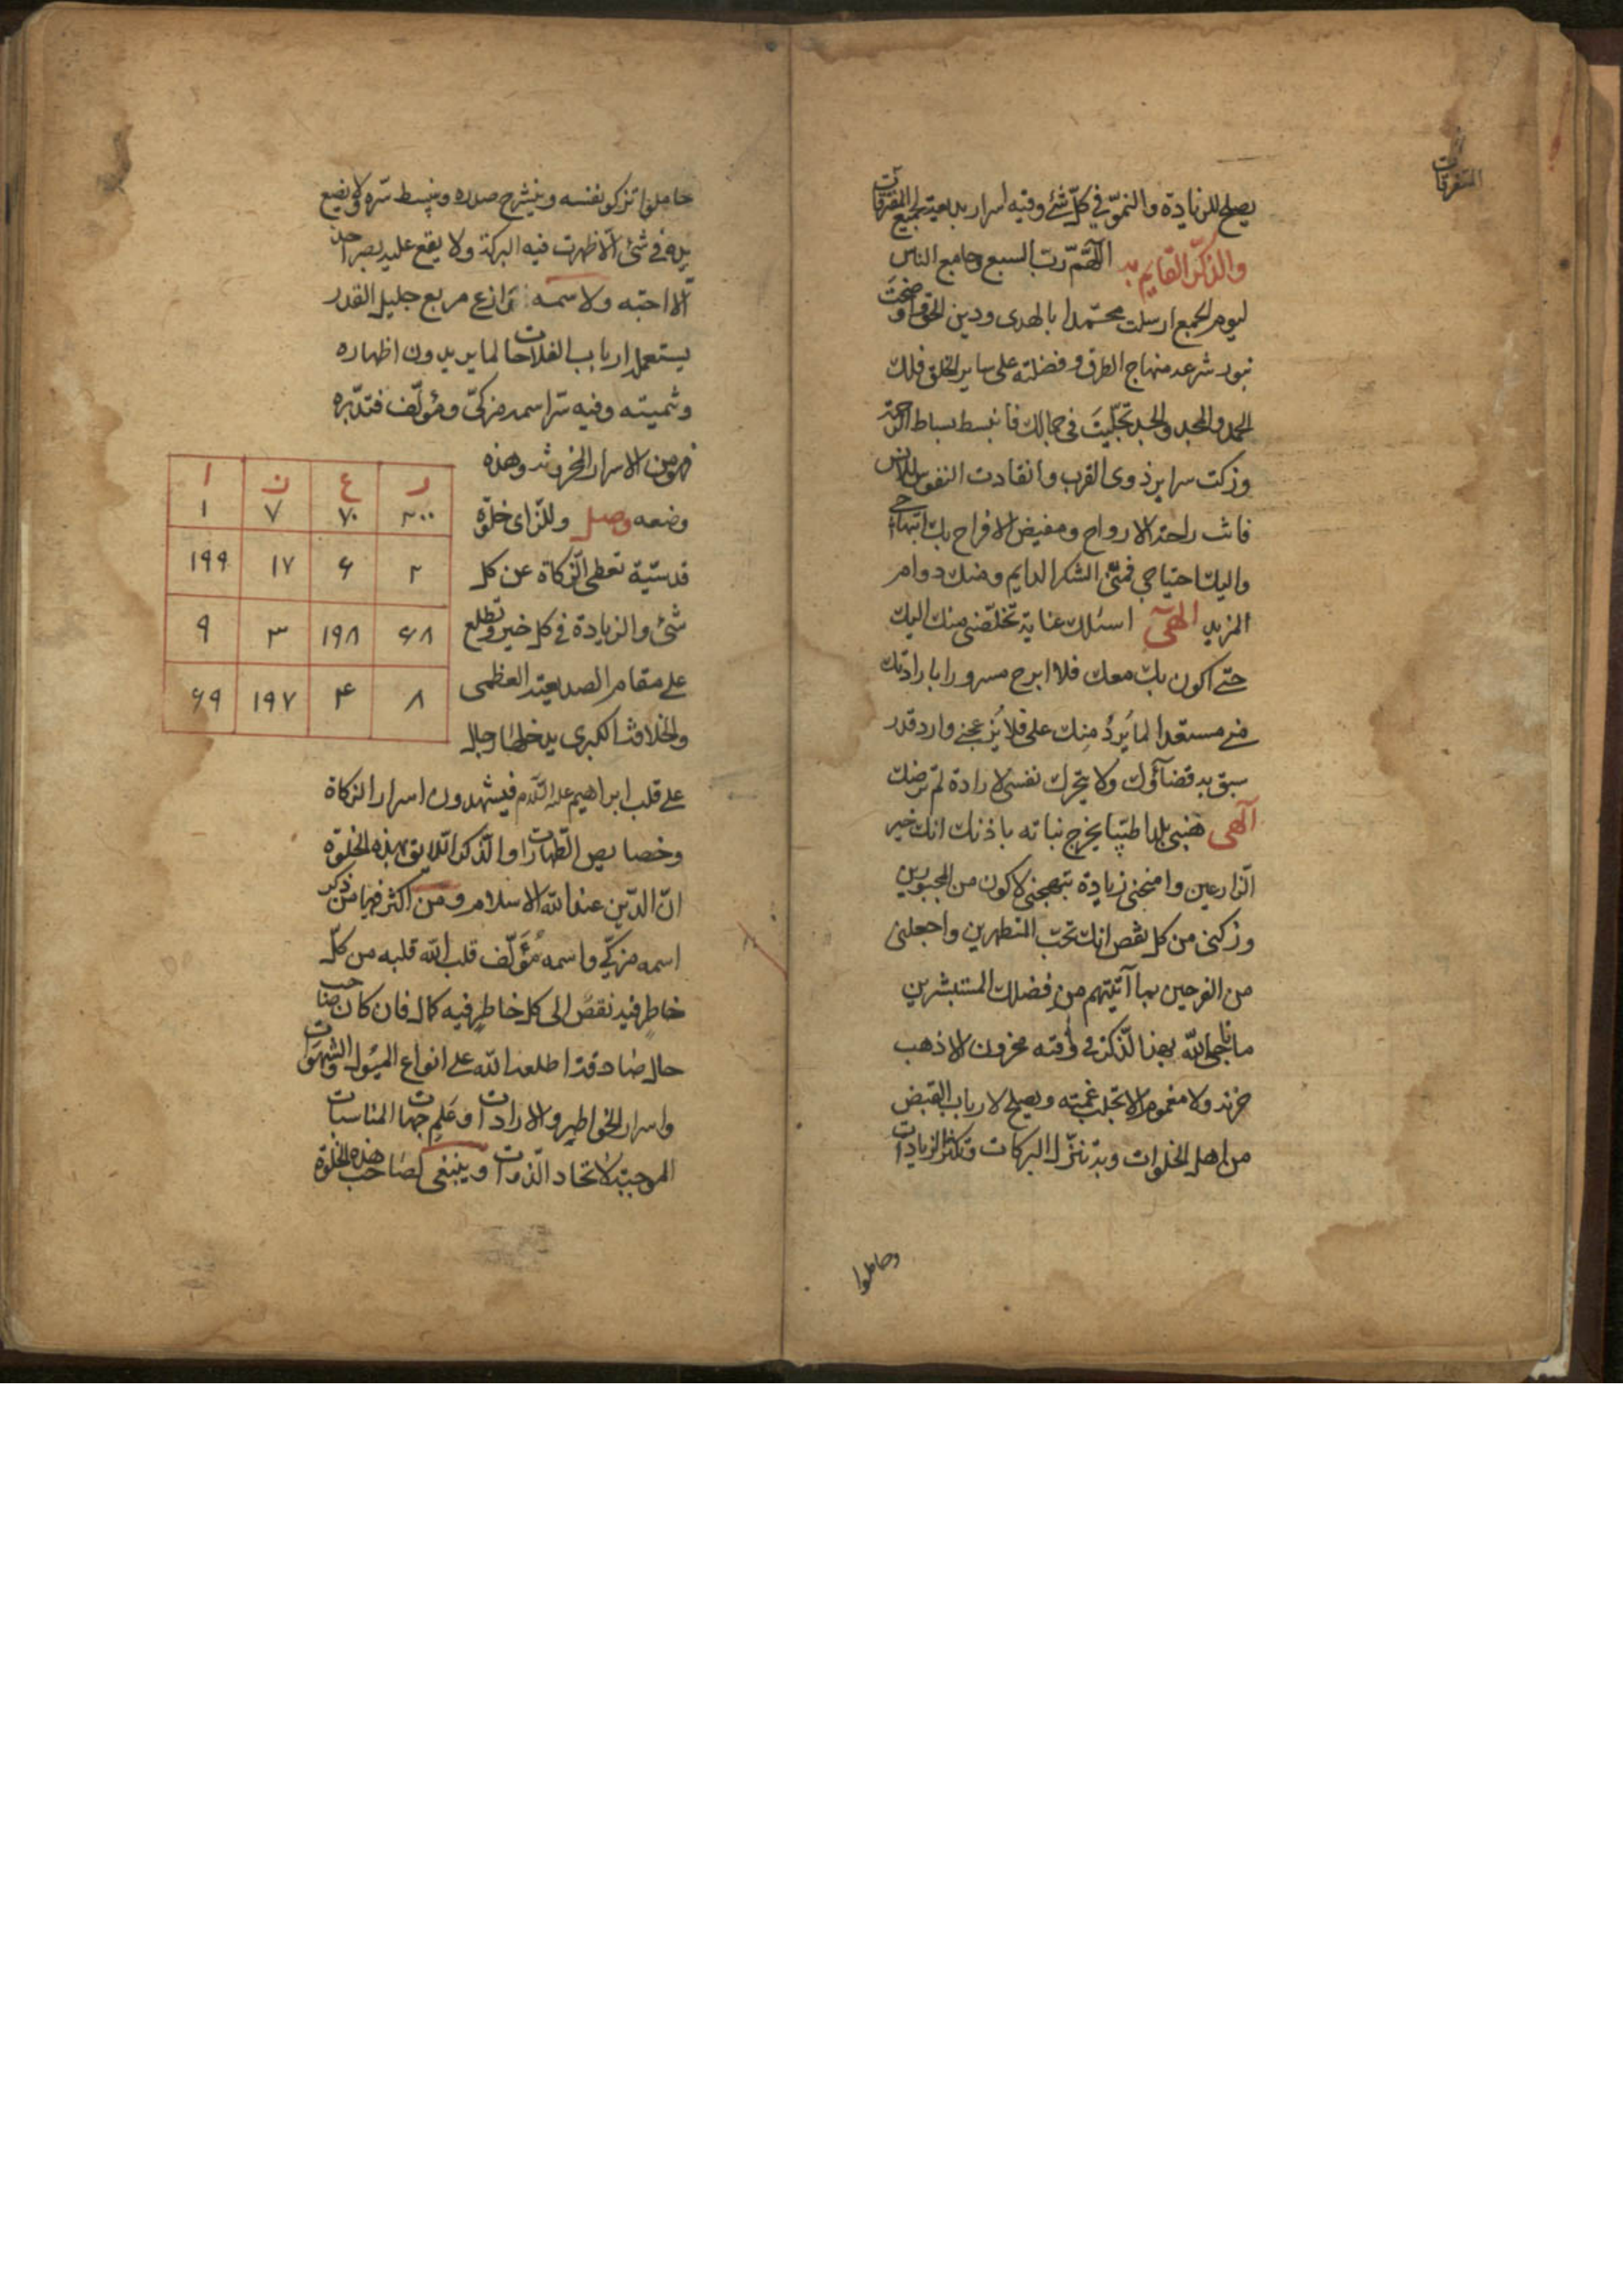 المتفرقات
يصلح للزيادة والنموّ في كلّ شئ وفيه اسرار بديعة لجميع المتفرقات
والذكر القايم به اللهمّ ربّ السبع وجامع الناس
ليوم الجمع ارسلت محمّدا بالهدى ودين الحق واوضحت
بنور شرعه منهاج الطرق وفضلته على ساير الخلق فلك
الحمد والمجد تجلّيت في جمالك فانبسط بساط الرحمة
وزكت سراير ذوى القرب وانقادت النفوس للانس
فانت راحة الارواح ومفيض الافراح بك ابتهاجي
واليك احتياجي فمنّى الشكر الدايم ومنك دوام
المزيد الهى اسئلك عناية تخلّصنى منك اليك
حتى اكون بك معك فلا ابرح مسرورا بارادتك
منى مستعدا لما يَردُ مِنك على فلا يُزعجنى وارد قدر
سبق به قضآؤك ولا يتحرك نفسى لارادة لم ترضك
آلهى هبنى بلدا طيّبا يخرج نباته باذنك انك خير
الزارعين وامنحنى زيادة تبهجنى لاكون من المحبوبين
وزكنى من كل نقص انك تحبّ المتطهرين واجعلنى
من الفرحين بما آتيتهم من فضلك المستبشرين
ما ناجى الله بهذا الذكر في وقته محزون الا ذهب
حزنه ولا مغموم الا تجلت غمته ويصلح لارباب القبض
من اهل الخلوات وبه تنزّل البركات وتكثر الزيادات
وحاملوا
حاملوا تزكو نفسه وينشرح صدره وينبسط سرّه لا يضع
يده في شئ الّا ظهرت فيه البركة ولا يقع عليه بصر احد
الّا احبّه ولاسمه زارع مربع جليل القدر
يستعمله ارباب الفلاحات لما يريدون اظهاره
وتنميته وفيه سرّ اسمه مزكّى ومؤلّف فتدبّره
فهو من الاسرار المخزونة وهذه
وضعه وصل وللزاى خلوة
قدسيّة تعطى الزكاة عن كل
شئ والزيادة في كل خير وتطلع
على مقام الصديقية العظمى
والخلافة الكبرى يدخلها رجال
ر ع ز ا
٢٠٠ ٧٠ ٧ ١
٢ ۶ ١٧ ١٩٩
۶٨ ١٩٨ ٣ ٩
٨ ۴ ١٩٧ ۶٩
على قلب ابراهيم عليه السّلام فيشهدون اسرار الزكاة
وخصايص الطهارات والذكر اللايق بهذه الخلوة
انّ الدّين عند الله الاسلام ومن اكثر فيها من ذكر
اسمه مزكّى واسمه مُؤَلّف قلب الله قلبه من كلّ
خاطر فيه نقص الى كل خاطر فيه كمال فان كان صاحب
حال صادقة اطلعه الله على انواع الميُول والشهوات
واسرار الخواطر والارادات وعَلم جهات المناسبات
الموجبة لاتحاد الذوات وينبغى لصاحب هذه الخلوة